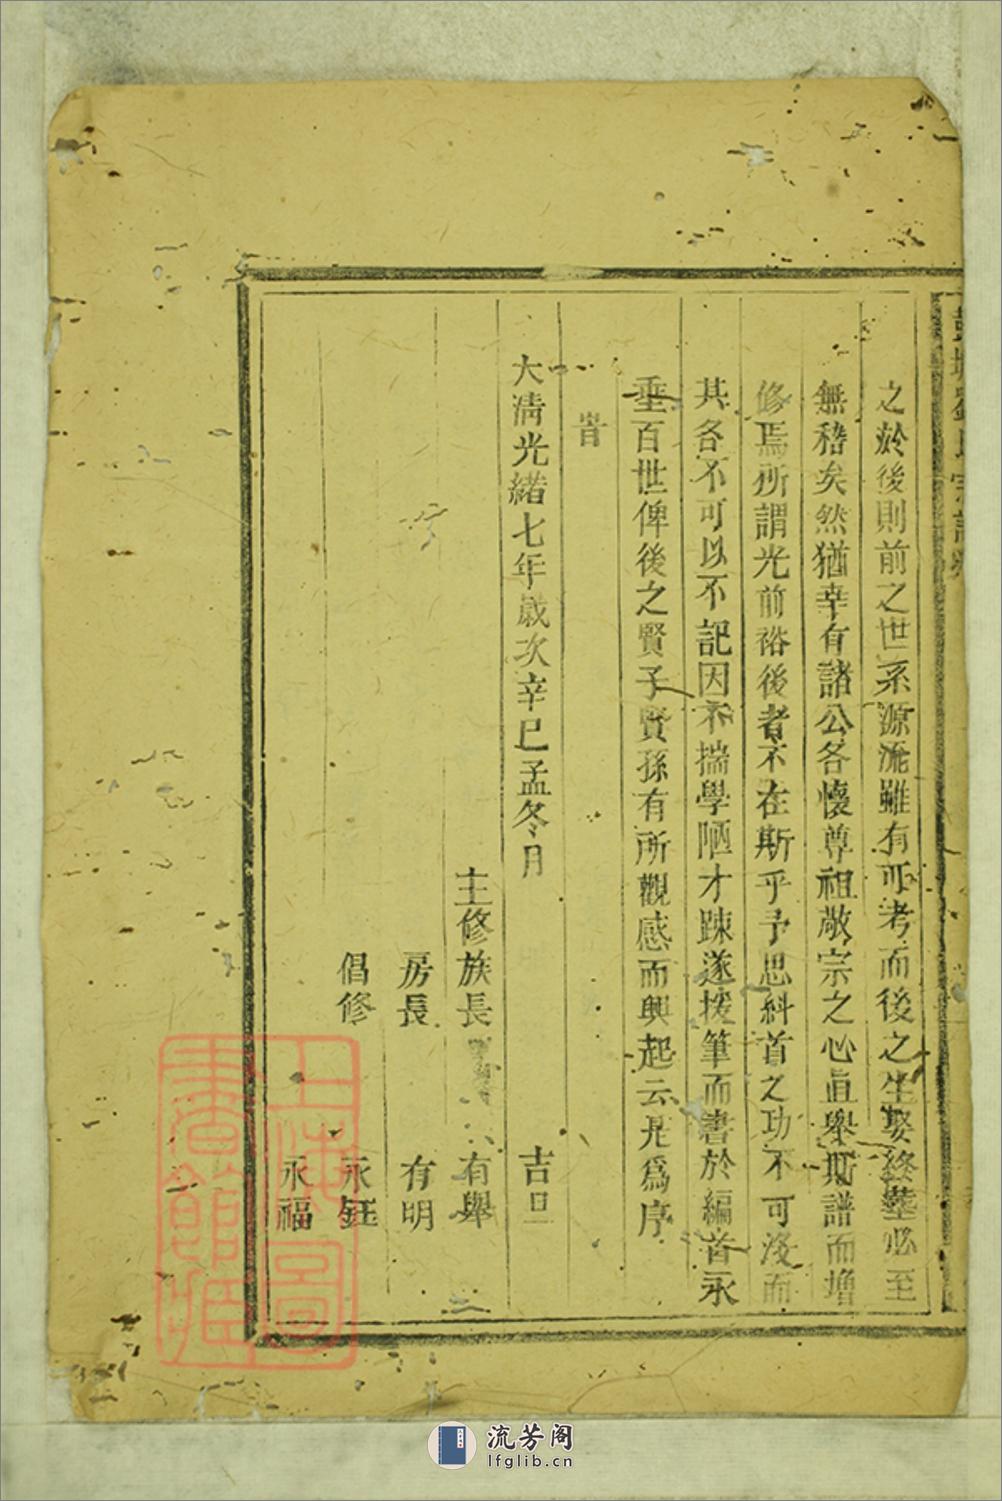 劉氏宗譜
之於後則前之世系源流雖有可考而後之生娶終塟必至
無稽矣然猶幸有諸公各懷尊祖敬宗之心亟舉斯譜而增
修焉所謂光前裕後者不在斯乎予思糾首之功不可沒而
其名不可以不記因不揣學陋才踈遂援筆而書於編首永
垂百世俾後之賢子賢孫有所觀感而興起云尤爲序
旹
大淸光緒七年歲次辛巳孟冬月 吉旦
主修族長 有舉
房長 有明
倡修 永鈺
永福
上海圖書館藏
流芳阁
lfglib.cn